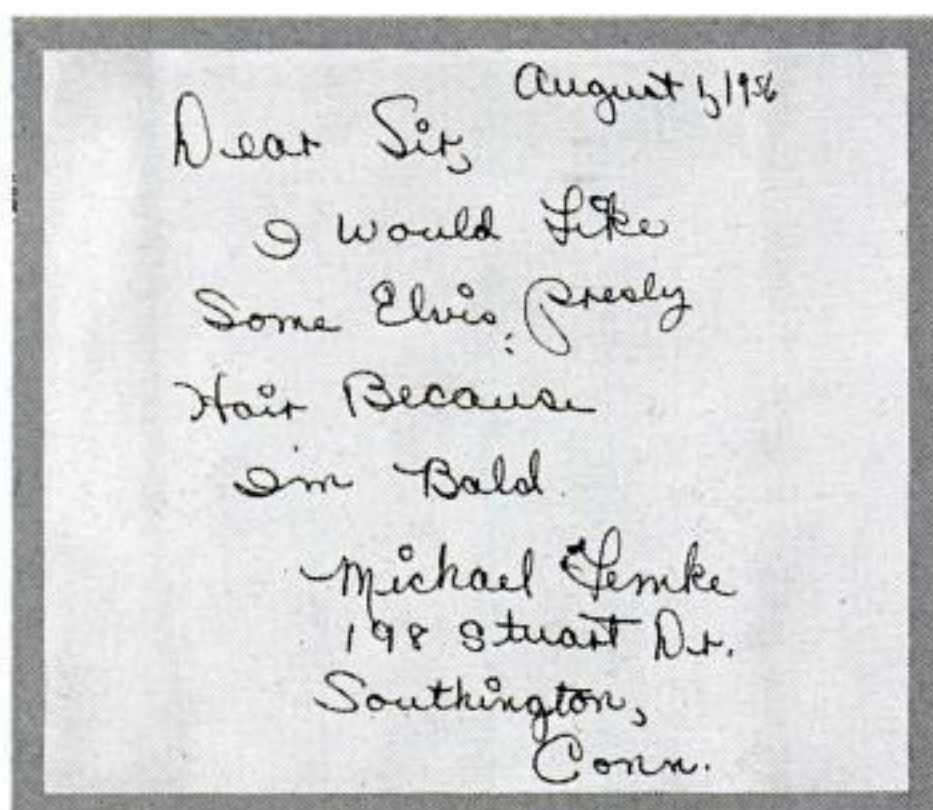 August 1, 1956
Dear Sir,
I would Like
Some Elvis, Presly
Hair Because
I'm Bald.
Michael Lemke
198 Stuart Dr.
Southington,
Conn.